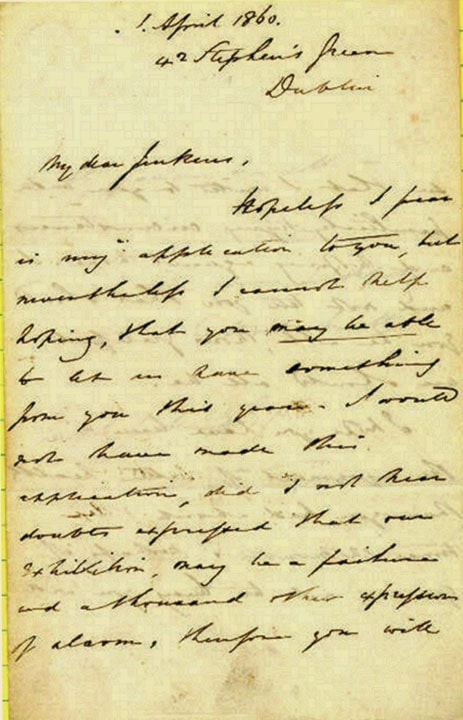 1 April 1860.
42 Stephen's Green
Dublin
My dear Jenkins,
Hopeless I fear
is my application to you, but
nevertheless I cannot help
hoping, that you may be able
to let us have something
from you this year. I would
not have made this
application, did I not hear
doubts expressed that our
Exhibition, may be a failure
and a thousand other expressions
of alarm, therefore you will